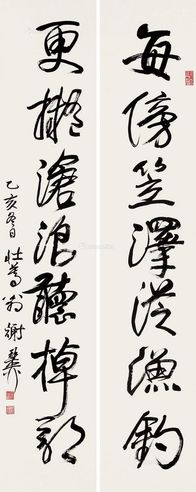 每傍笠澤從漁釣
更擬滄浪聽棹歌
乙亥冬日 壯暮翁謝稚柳